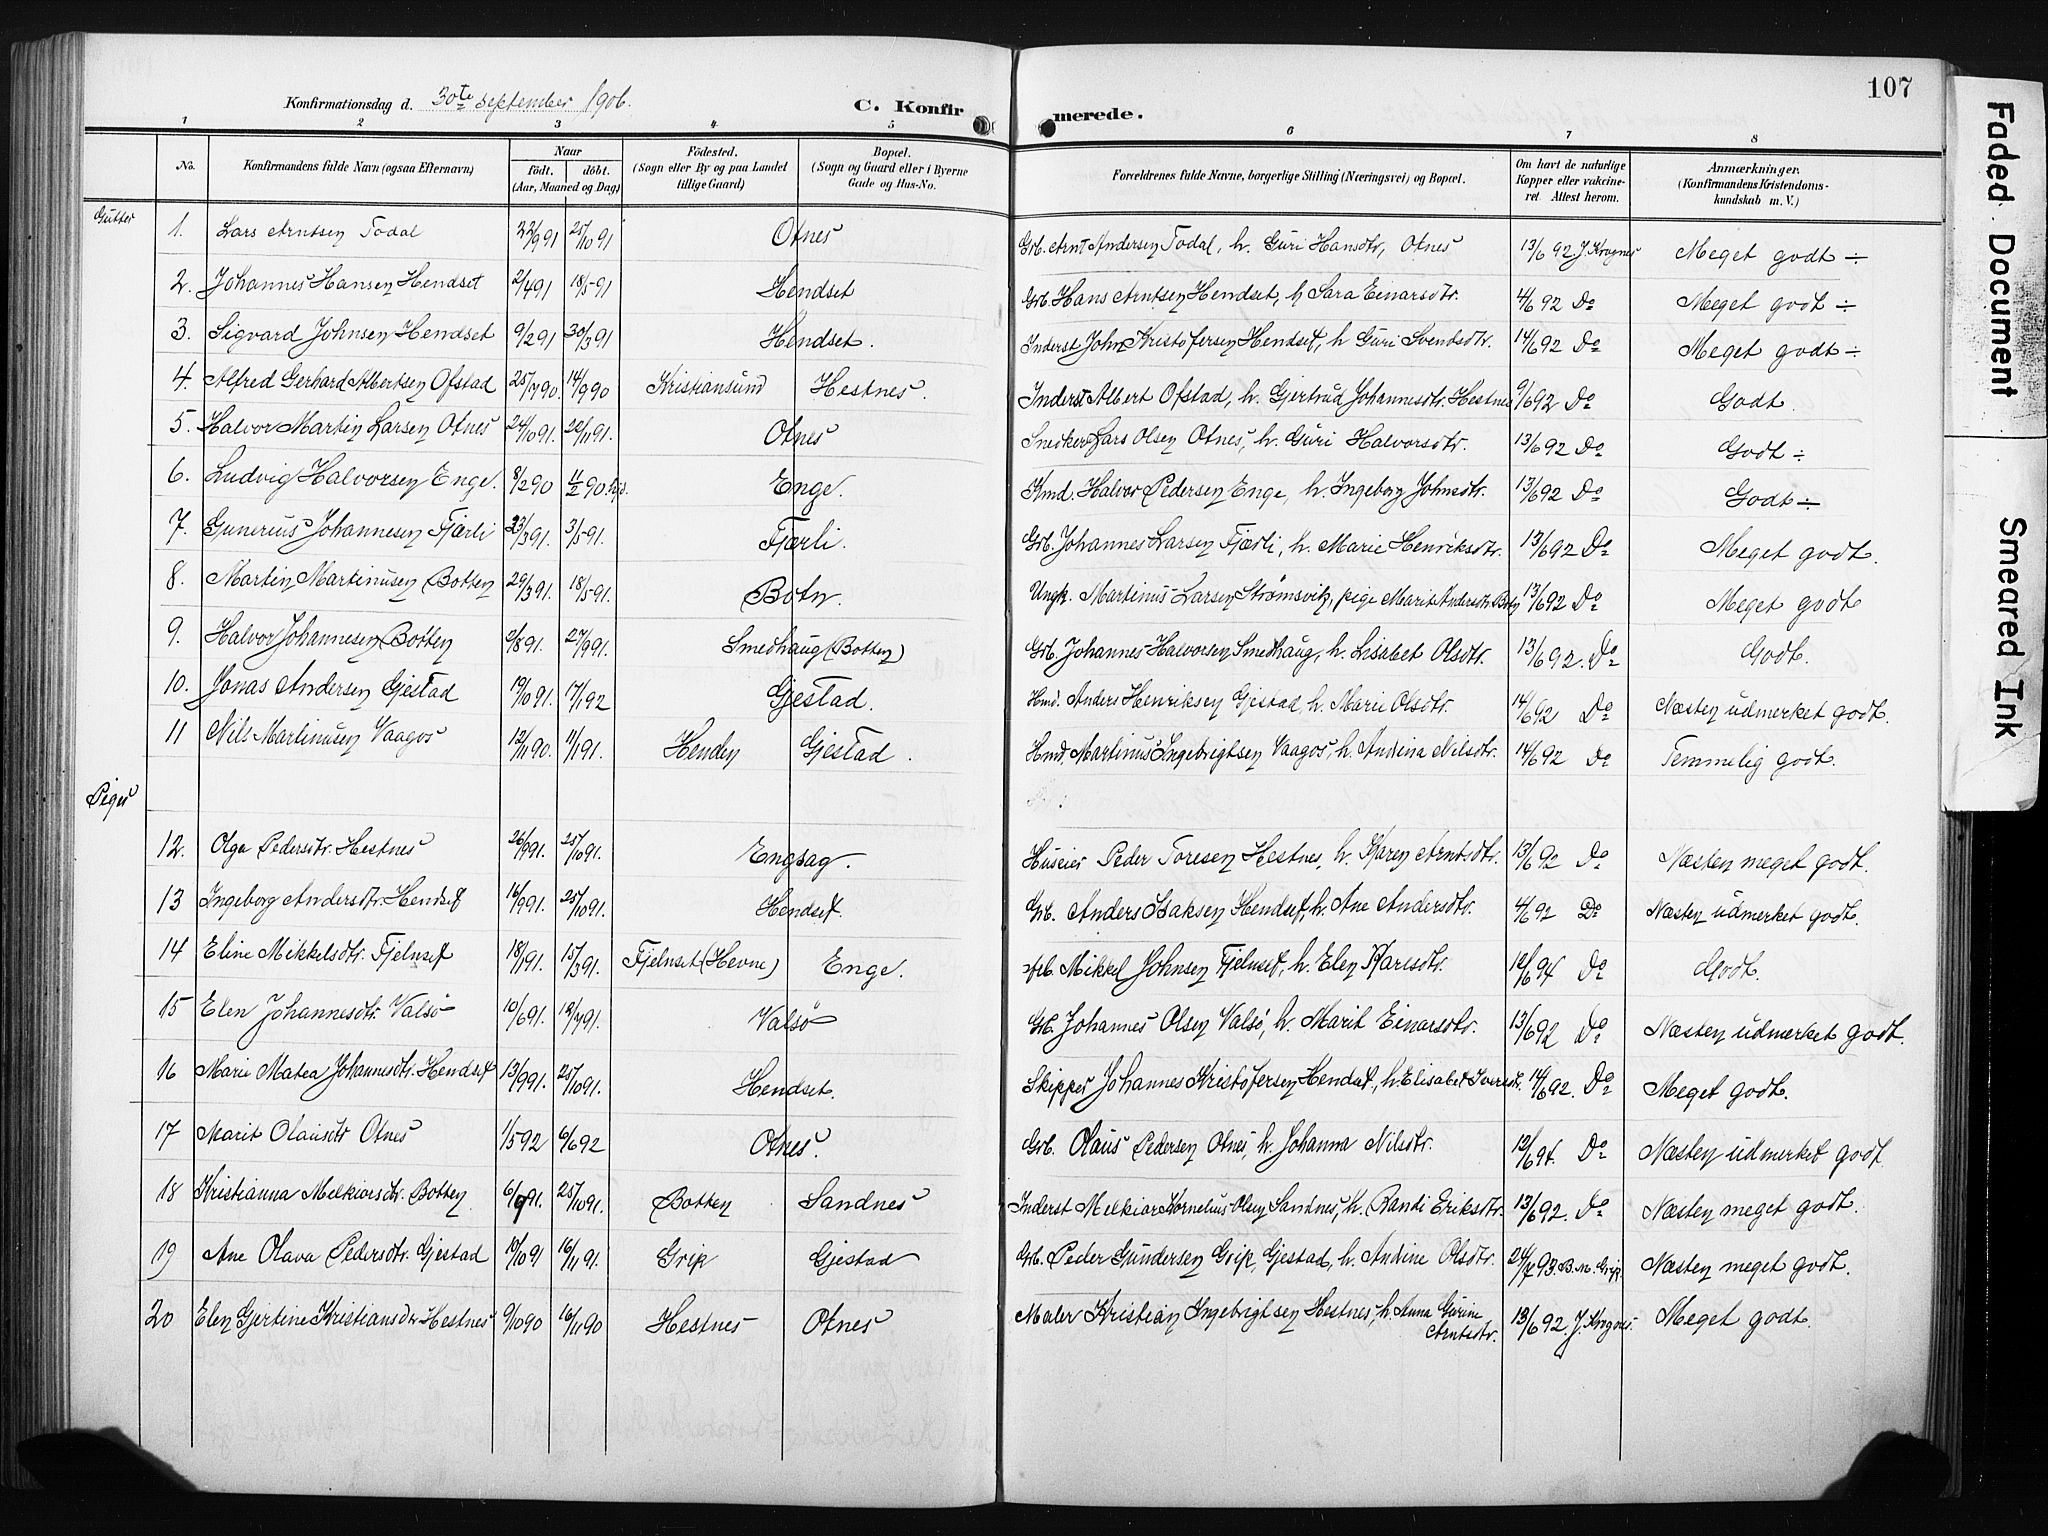 107
Konfirmationsdag d. 30te september 1906.
C. Konfirmerede.
1 2 3 4 5 6 7 8
No. Konfirmandens fulde Navn (ogsaa Efternavn) Naar født. døbt. (Aar, Maaned og Dag) Födested. (Sogn eller By og paa Landet tillige Gaard) Bopæl. (Sogn og Gaard eller i Byerne Gade og Hus-No.) Forældrenes fulde Navne, borgerlige Stilling (Næringsvei) og Bopæl. Om havt de naturlige Kopper eller vakcineret. Attest herom. Anmærkninger. (Konfirmandens Kristendomskundskab m. V.)
Gutter
1. Lars Arntsen Todal 22/9 91 25/10 91 Otnes Grb. Arnt Andersen Todal, h. Guri Hansdtr, Otnes 13/6 92 J. Krognes Meget godt ÷
2. Johannes Hansen Hendset 2/4 91 18/5 91 Hendset Grb Hans Arntsen Hendset, h Sara Einarsdtr. 4/6 92 Do Meget godt ÷
3. Sigvard Johnsen Hendset 9/2 91 30/3 91 Hendset. Inderst John Kristofersen Hendset, h Guri Svendsdtr. 14/6 92 Do Meget godt ÷
4. Alfred Gerhard Albertsen Ofstad 25/7 90 14/9 90 Kristiansund Hestnes. Inderst Albert Ofstad, h. Gjertrud Johannesdtr. Hestnes 9/6 92 Do Godt.
5. Halvor Martin Larsen Otnes 24/10 91. 22/11 91. Otnes Snedker Lars Olsen Otnes, h. Guri Halvorsdtr. 13/6 92 Do Godt ÷
6. Ludvig Halvorsen Enge. 8/2 90 11/2 90. Enge. Kmd. Halvor Pedersen Enge, h. Ingeborg Johnsdtr. 13/6 92 Do Godt ÷
7. Gunerius Johannesen Fjærli 23/3 91. 3/5 91. Fjærli. Grb. Johannes Larsen Fjærli, h. Marie Henriksdtr. 13/6 92 Do Meget godt.
8. Martin Martinusen Botten 29/3 91. 18/5 91. Botn. Ungk. Martinus Larsen Strømsvik, pige Marit Andersdtr. Botn 13/6 92 Do Meget godt
9. Halvor Johannesen Botten 2/8 91. 27/9 91. Smedhaug (Botten) Grb. Johannes Halvorsen Smedhaug, h. Lisabet Olsdtr. 13/6 92. Do Godt.
10. Jonas Andersen Gjestad 19/10 91. 17/1 92 Gjestad. Hmd. Anders Henriksen Gjestad, h. Marie Olsdtr. 14/6 92 Do Næsten udmerket godt.
11 Nils Martinusen Vaagos 12/11 90. 11/1 91. Henden Gjestad. Hmd. Martinus Ingebrigtsen Vaagos, h. Andrina Nilsdtr. 14/6 92 Do Temmelig godt.
Piger
12. Olga Pedersdtr. Hestnes 26/9 91. 25/10 91. Engsag. Huseier Peder Toresen Hestnes, h. Karen Arntsdtr. 13/6 92 Do Næsten meget godt.
13 Ingeborg Andersdtr. Hendset 16/9 91. 25/10 91. Hendset. Grb. Anders Isaksen Hendset, h. Ane Andersdtr. 4/6 92 Do Næsten udmerket godt.
14 Eline Mikkelsdtr. Fjelnset 18/1 91. 15/3 91. Fjelnset (Hevne) Enge. Mikkel Johnsen Fjelnset, h. Elen Karlsdtr. 12/6 94 Do Godt.
15 Elen Johannesdtr. Valsø 10/6 91. 12/7 91. Valsø Grb. Johannes Olsen Valsø, h. Marit Einarsdtr. 13/6 92 Do Næsten udmærket godt.
16 Marie Matea Johannesdtr. Hendset 13/9 91. 25/10 91. Hendset. Skipper Johannes Kristofersen Hendset, h Elisabet Iversdtr. 14/6 92. Do Meget godt.
17 Marit Olausdtr Otnes 1/5 92 6/6 92 Otnes. Grb. Olaus Pedersen Otnes, h. Johanna Nilsdtr. 12/6 94. Do Næsten udmerket godt
18 Kristianna Melkiorsdtr. Botten. 6/9 91. 25/10 91. Botten Sandnes Inderst Melkior Kornelius Olsen Sandnes, h. Randi Eriksdtr. 13/6 92. Do Næsten meget godt.
19 Ane Olava Pedersdtr. Gjestad 10/10 91 16/11 91. Grip Gjestad Grb. Peder Gundersen Grip, Gjestad, h. Andine Olsdtr. 24/7 93. B.M. Grip. Næsten meget godt.
20 Elen Gjertine Kristiansdtr Hestnes 9/10 90 16/11 90 Hestnes Otnes Maler Kristian Ingebrigtsen Hestnes, h. Anna Gurine Arntsdtr. 13/6 92. J. Krognes. Meget godt.
Faded Document
Smeared Ink